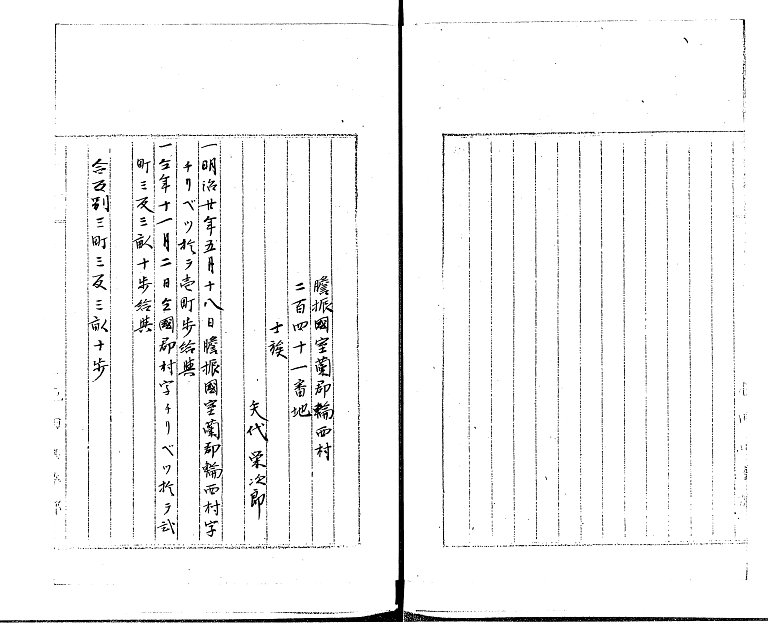 膽振國室蘭郡輪西村
二百四十一番地
士族
矢代栄次郎
一明治廿年五月十八日膽振國室蘭郡輪西村字
チリベツ於テ壱町歩給與
一仝年十一月二日仝國郡村字チリベツ於テ弐
町三反三畝十歩給與
合反別三町三反三畝十歩